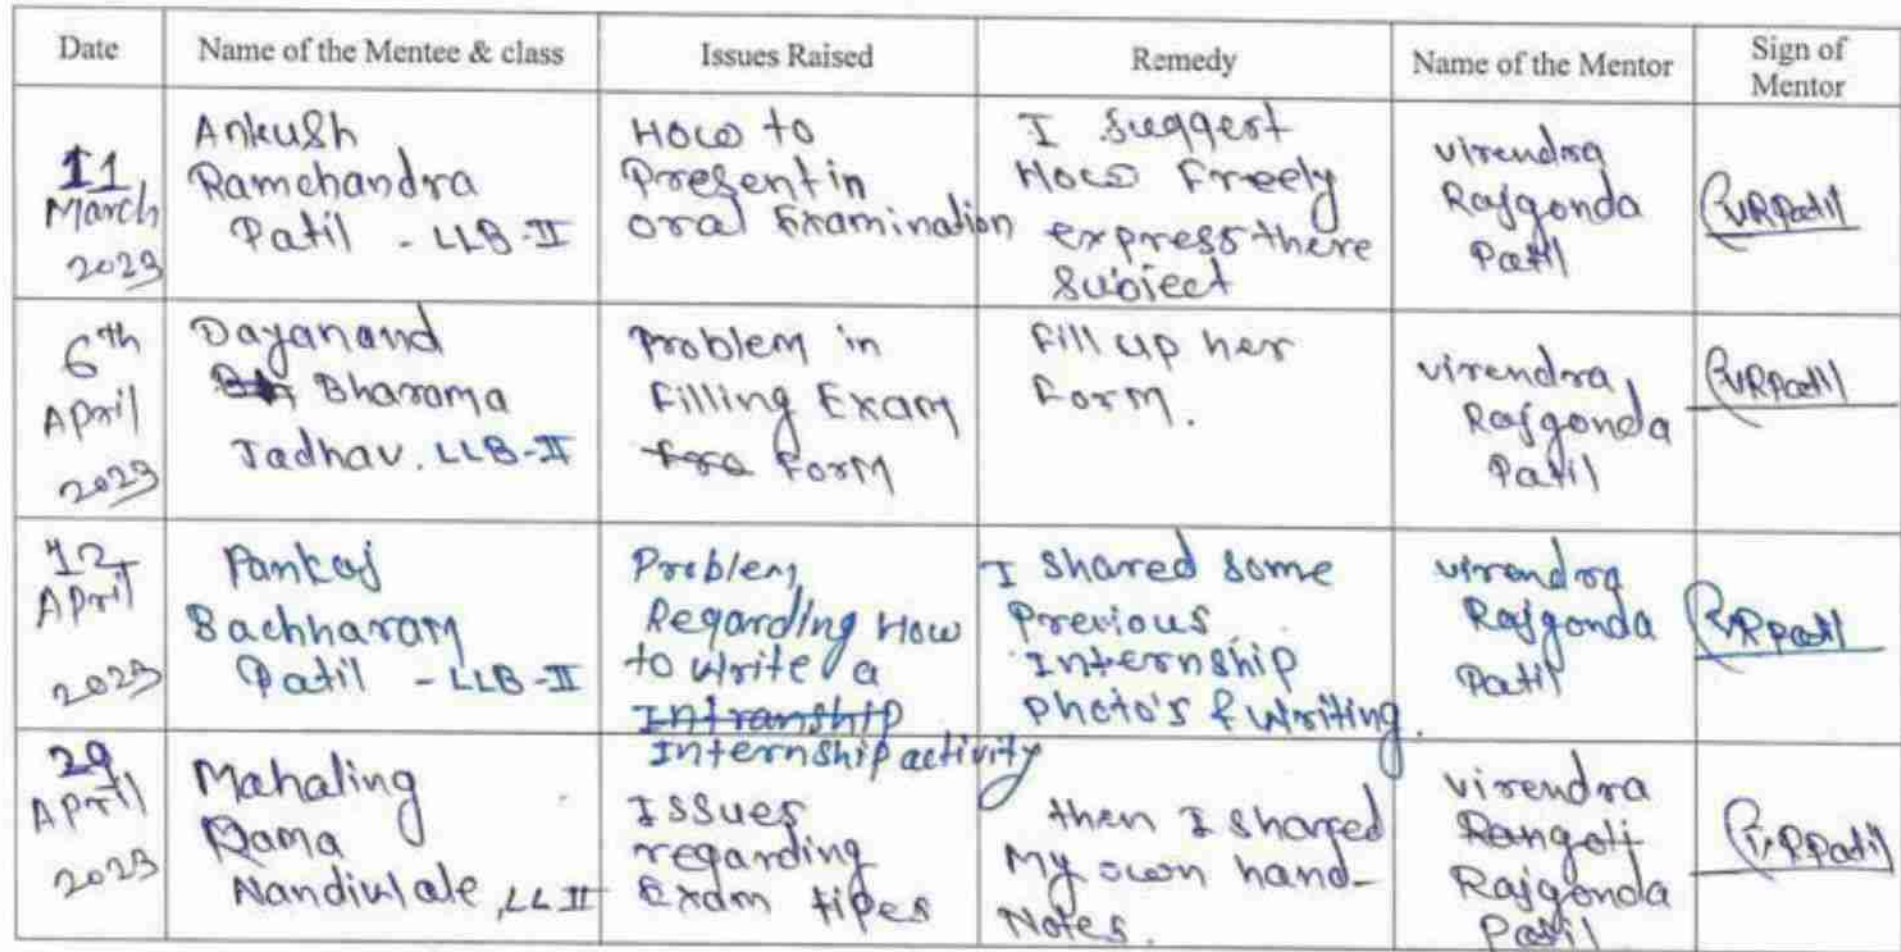 Date
Name of the Mentee & class
Issues Raised
Remedy
Name of the Mentor
Sign of
Mentor
11
March
2023
Ankush
Ramchandra
Patil - LLB-II
How to
Present in
oral Examination
I suggest
How Freely
express there
subject
virendra
Rajgonda
Patil
VRPatil
6th
April
2023
Dayanand
Bharama
Jadhav. LLB-II
Problem in
Filling Exam
Form
Fill up her
Form.
virendra
Rajgonda
Patil
VRPatil
12
April
2023
Pankaj
Bachharam
Patil - LLB-II
Problem
Regarding How
to write a
Intranship
Internship activity
I shared some
Previous
Internship
photo's & writing.
virendra
Rajgonda
Patil
VRPatil
29
April
2023
Mahaling
Rama
Nandiwale, LL II
Issues
regarding
Exam tipes
then I shared
My own hand-
Notes.
virendra
Rajgonda
Patil
VRPatil